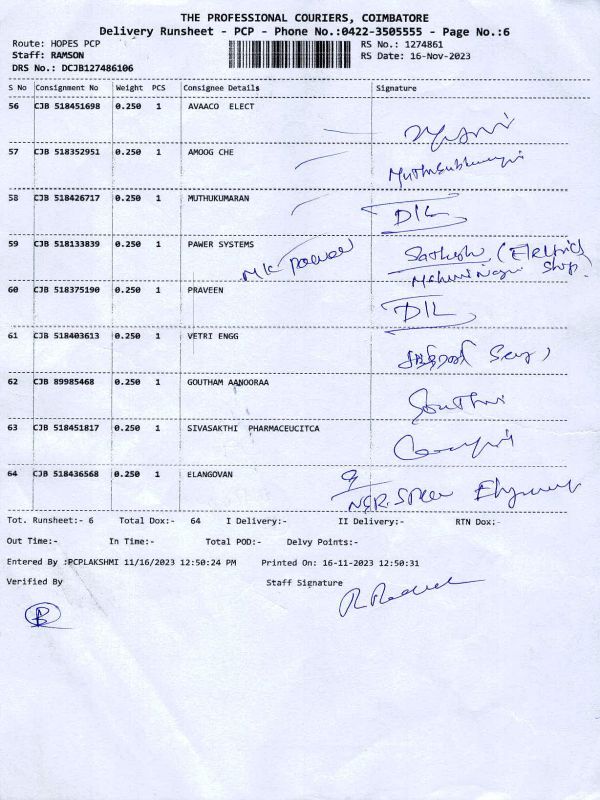 THE PROFESSIONAL COURIERS, COIMBATORE
Delivery Runsheet - PCP - Phone No.:0422-3505555 - Page No.:6
Route: HOPES PCP RS No.: 1274861
Staff: RAMSON RS Date: 16-Nov-2023
DRS No.: DCJB127486106
S No Consignment No Weight PCS Consignee Details Signature
56 CJB 518451698 0.250 1 AVAACO ELECT
57 CJB 518352951 0.250 1 AMOOG CHE
58 CJB 518426717 0.250 1 MUTHUKUMARAN D/L
59 CJB 518133839 0.250 1 PAWER SYSTEMS Sathish (Eletrics
MK Power Shop)
60 CJB 518375190 0.250 1 PRAVEEN D/L
61 CJB 518403613 0.250 1 VETRI ENGG
62 CJB 89985468 0.250 1 GOUTHAM AANOORAA Gouthmi
63 CJB 518451817 0.250 1 SIVASAKTHI PHARMACEUCITCA
64 CJB 518436568 0.250 1 ELANGOVAN
Tot. Runsheet:- 6 Total Dox:- 64 I Delivery:- II Delivery:- RTN Dox:-
Out Time:- In Time:- Total POD:- Delvy Points:-
Entered By :PCPLAKSHMI 11/16/2023 12:50:24 PM Printed On: 16-11-2023 12:50:31
Verified By Staff Signature